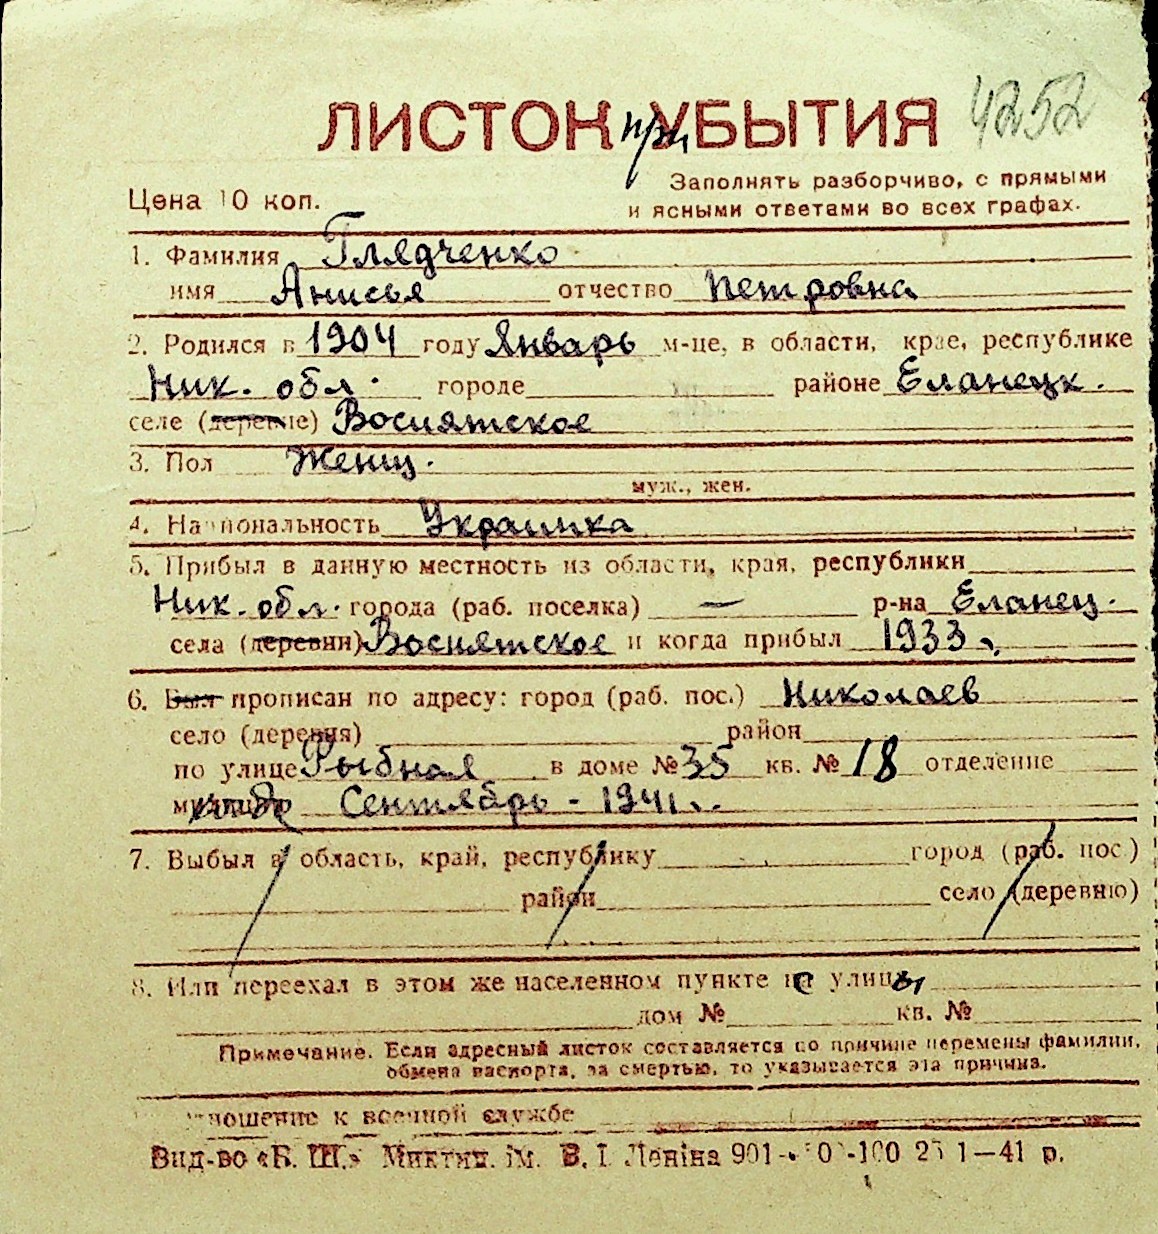 4252
ЛИСТОК при УБЫТИЯ
Заполнять разборчиво, с прямыми
Цена 10 коп.
и ясными ответами во всех графах.
1. Фамилия Глядченко
имя Анисья отчество Петровна
2. Родился в 1904 году Январь м-це, в области, крае, республике
Ник. обл. городе районе Еланецк.
селе (деревне) Восиятское
3. Пол Женщ.
муж., жен.
4. Национальность Украинка
5. Прибыл в данную местность из области, края, республики
Ник. обл. города (раб. поселка) — р-на Еланец.
села (деревни) Восиятское и когда прибыл 1933
6. Был прописан по адресу: город (раб. пос.) Николаев
село (деревня) район
по улице Рыбная в доме № 35 кв. № 18 отделение
Сентябрь - 1941
7. Выбыл в область, край, республику город (раб. пос.)
район село (деревню)
8. Или переехал в этом же населенном пункте с улицы
дом № кв. №
Примечание. Если адресный листок составляется по причине перемены фамилии,
обмена паспорта, за смертью, то указывается эта причина.
отношение к военной службе
Вид-во «Б. Ш.» Миктип. ім. В. І. Леніна 901 100 1—41 р.